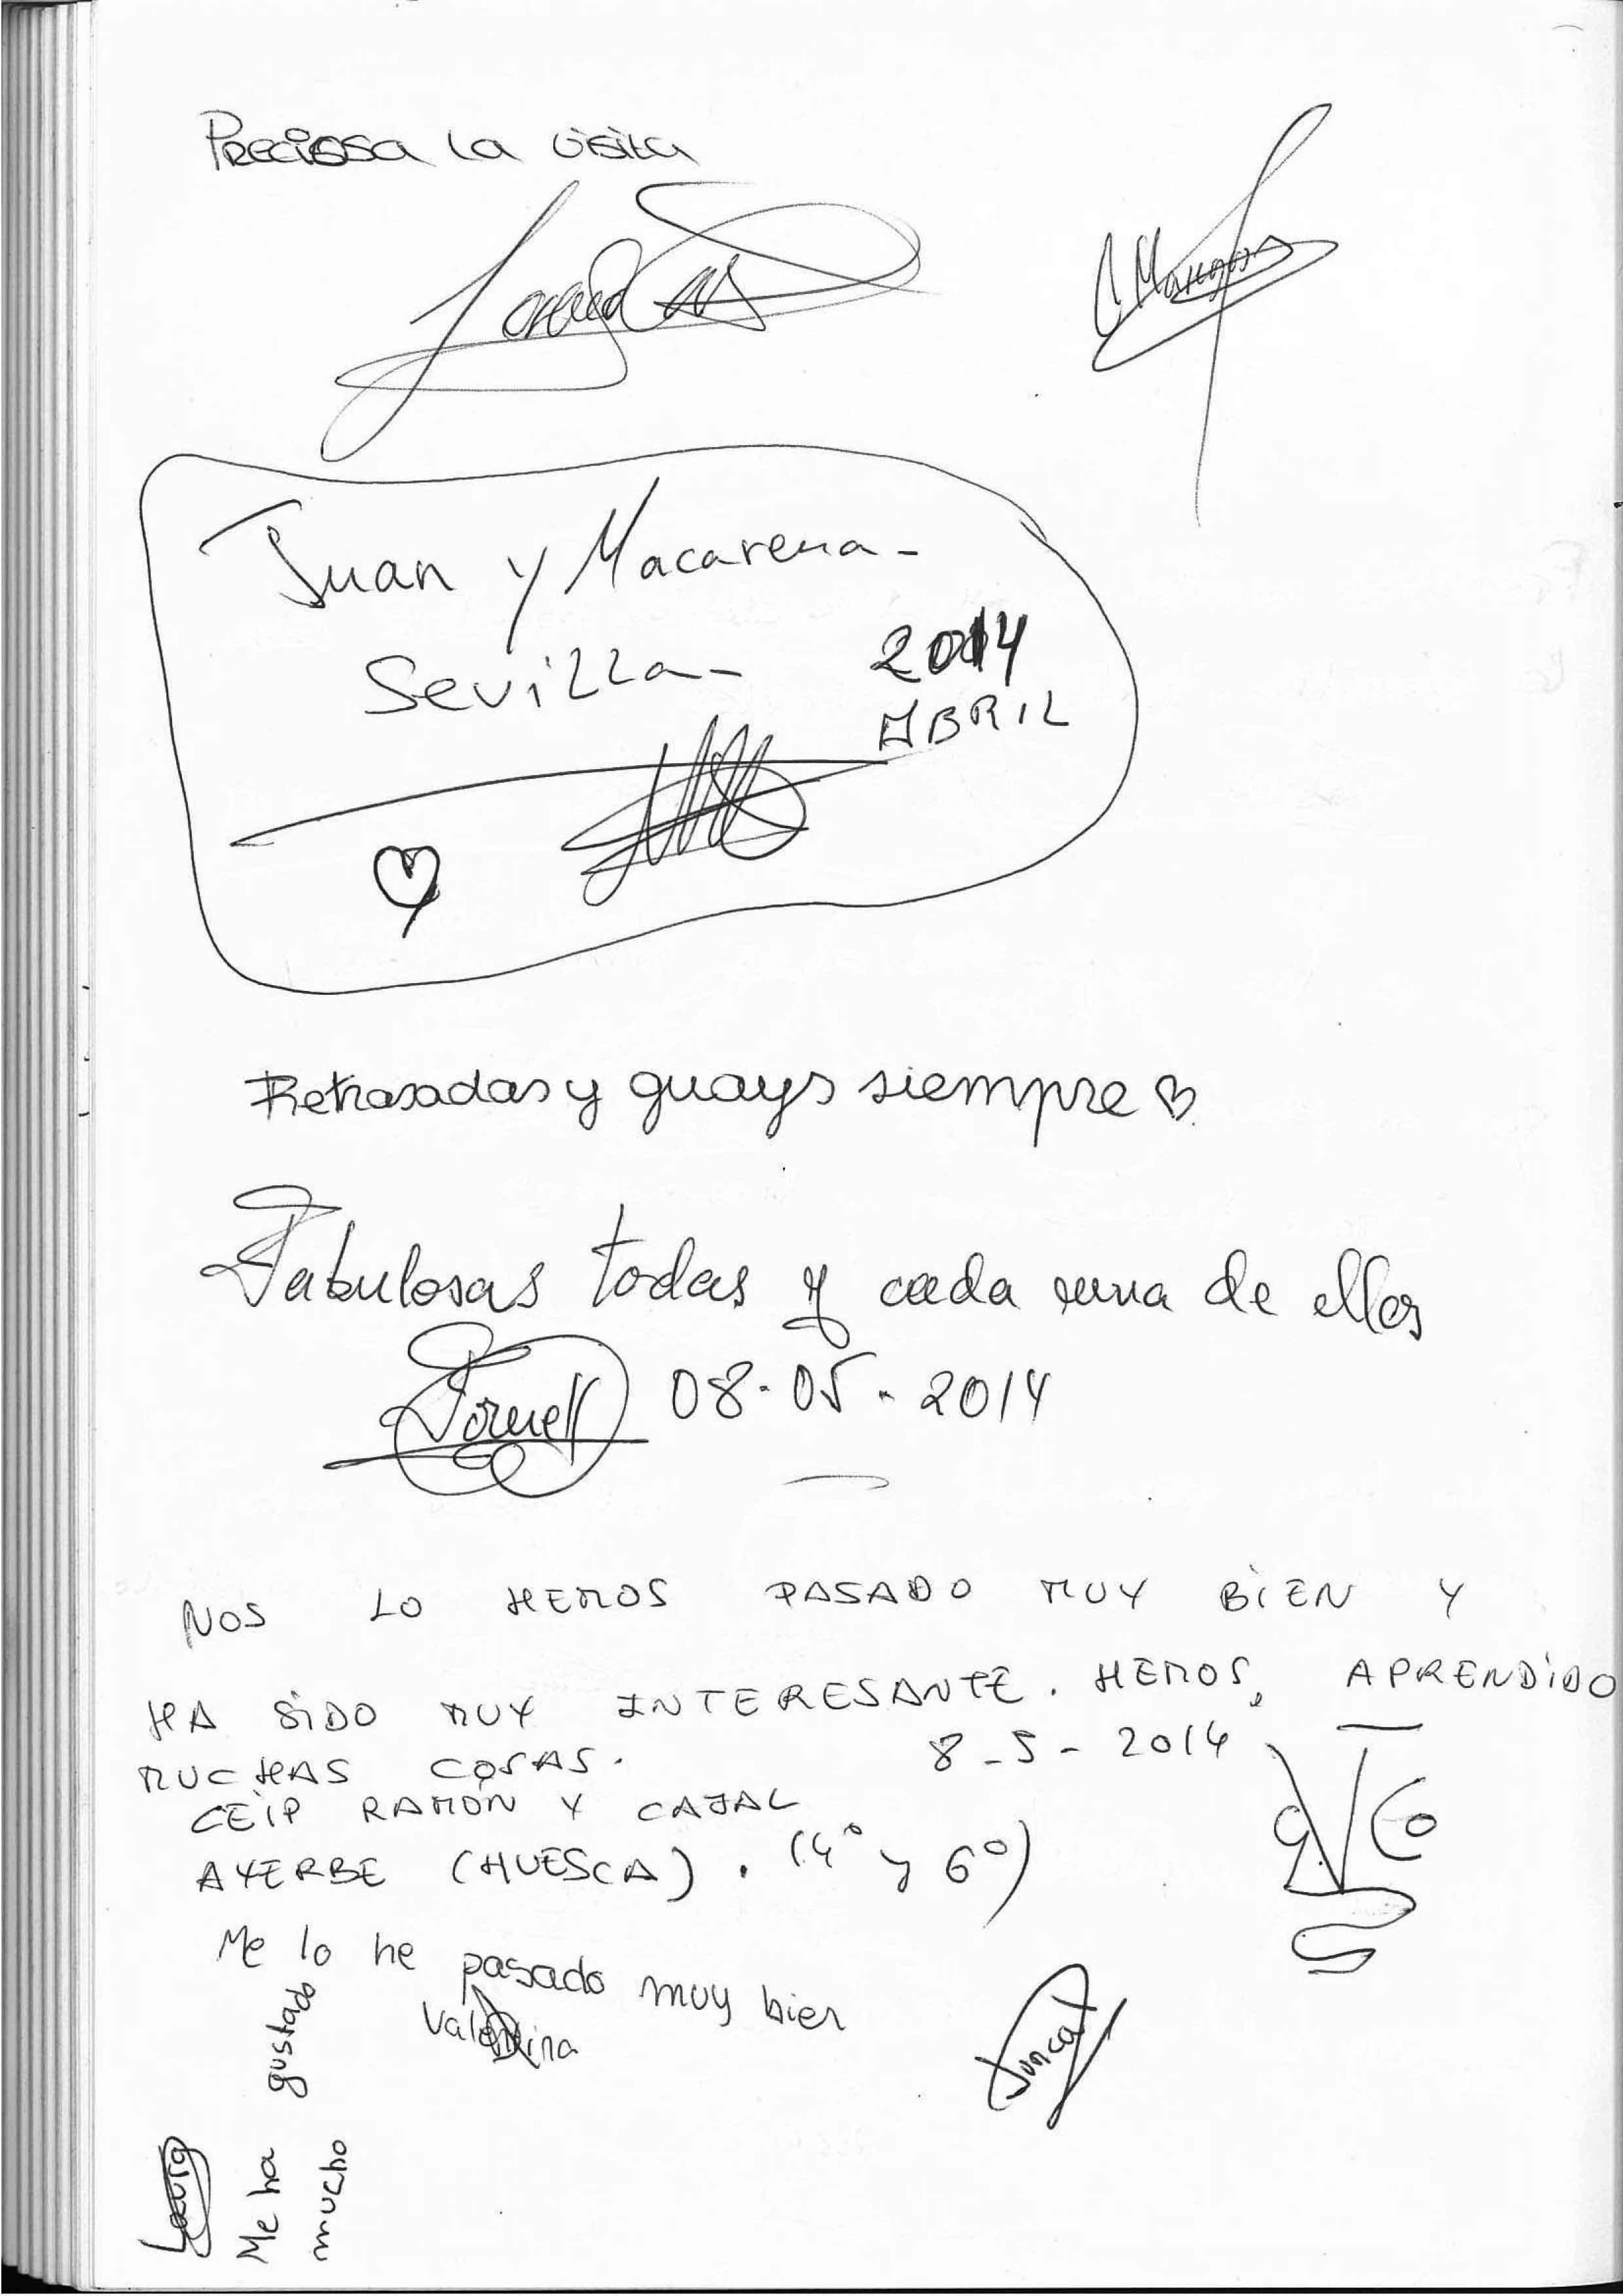 PRECIOSA LA VISITA
Juan y Macarena-
Sevilla-
2014
ABRIL
Retrasadas y guays siempre
Fabulosas todas y cada una de ellas
08-05-2014
NOS LO HEMOS PASADO MUY BIEN Y
HA SIDO MUY INTERESANTE. HEMOS APRENDIDO
MUCHAS COSAS.
8-5-2014
CEIP RAMÓN Y CAJAL
AYERBE (HUESCA). (4º y 6º)
Me lo he pasado muy bien
Valentina
Laura
Me ha gustado
mucho